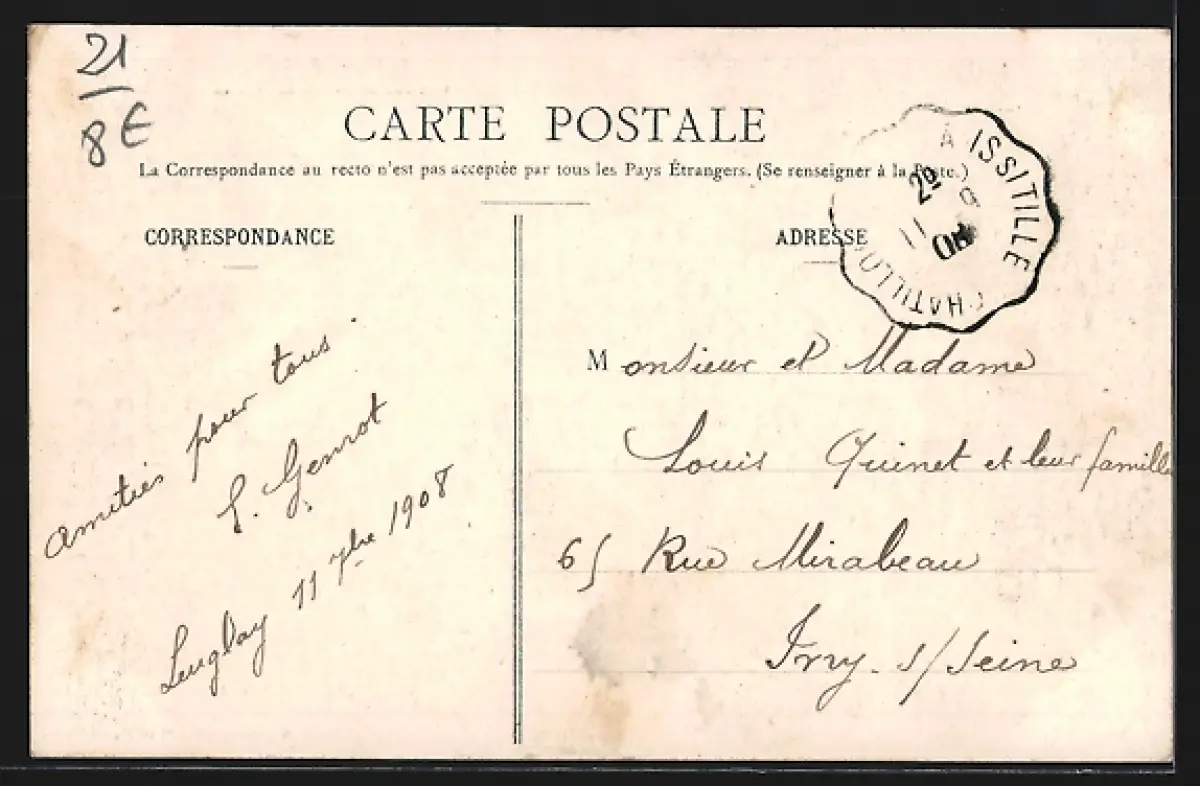 21
8€
CARTE POSTALE
La Correspondance au recto n'est pas acceptée par tous les Pays Étrangers. (Se renseigner à la Poste.)
CORRESPONDANCE
ADRESSE
A ISSITILLE
2E
11 9
08
CHATILLON
amitiés pour tous
Leuglay 11 7bre 1908
Monsieur et Madame
Louis Quinet et leur famille
65 Rue Mirabeau
Ivry. s/Seine